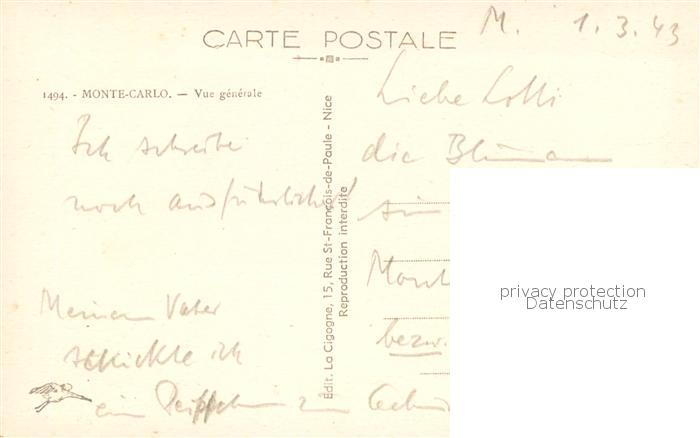 CARTE POSTALE
M. 1.3.43
1494. - MONTE-CARLO. — Vue générale
Liebe Lotti
die Blumen
Ich schreibe
noch ausführlicher!
Meinem Vater
schickte ich
ein
bezw.
Édit. La Cigogne, 15, Rue St-François-de-Paule - Nice
Reproduction interdite
privacy protection
Datenschutz